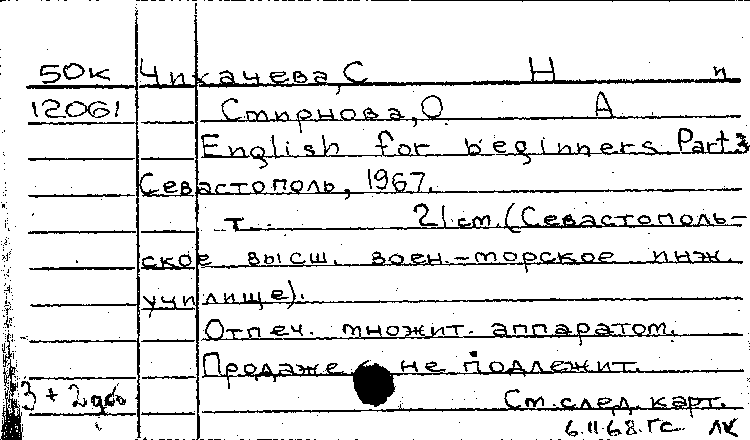 50к Чикачева, С Н и
12061 Смирнова, О А
English for beginners Part 3
Севастополь, 1967.
т. 21 см. (Севастополь-
ское высш. воен.-морское инж.
училище).
Отпеч. множит. аппаратом.
Продаже не подлежит.
3 + 2
См. след. карт.
6.11.68. Гс ЛК